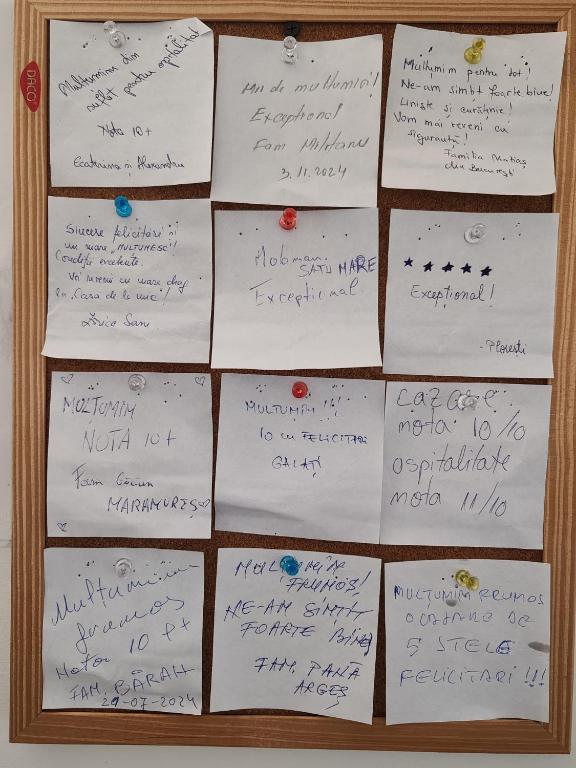 DACO
Mulțumim din
suflet pentru ospitalitate
Nota 10+
Ecaterina și Alexandru
Mii de mulțumiri!
Excepțional
Fam Militaru
3.11.2024
Mulțumim pentru tot!
Ne-am simțit foarte bine!
Liniște și curățenie!
Vom mai reveni cu
siguranță!
Familia Matiaș
din București
Sincere felicitări și
un mare "MULȚUMESC"!
Condiții excelente.
Voi reveni cu mare drag
la "Casa de la
SATU MARE
Excepțional
★ ★ ★ ★ ★
Excepțional!
- Ploiești
MULȚUMIM
NOTA 10+
Fam
MARAMUREȘ
MULȚUMIM !!!
10 cu FELICITARI
GALAȚI
cazare
nota 10/10
ospitalitate
nota 11/10
Multumim
frumos
Nota 10 f+
FAM. BĂRAN
29-07-2024
MULȚUMIM
FRUMOS!
NE-AM SIMȚIT
FOARTE BINE
FAM. PANĂ
ARGEȘ
MULȚUMIM FRUMOS
O CAZARE DE
5 STELE
FELICITARI !!!